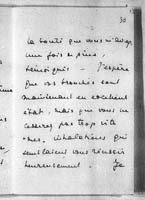 30
la bonté que vous m'avez
une fois de plus,
témoignée. J'espère
que vos bronches sont
maintenant en excellent
état, mais que vous ne
cesserez pas trop vite
les inhalations qui
semblaient vous réussir
heureusement. Je